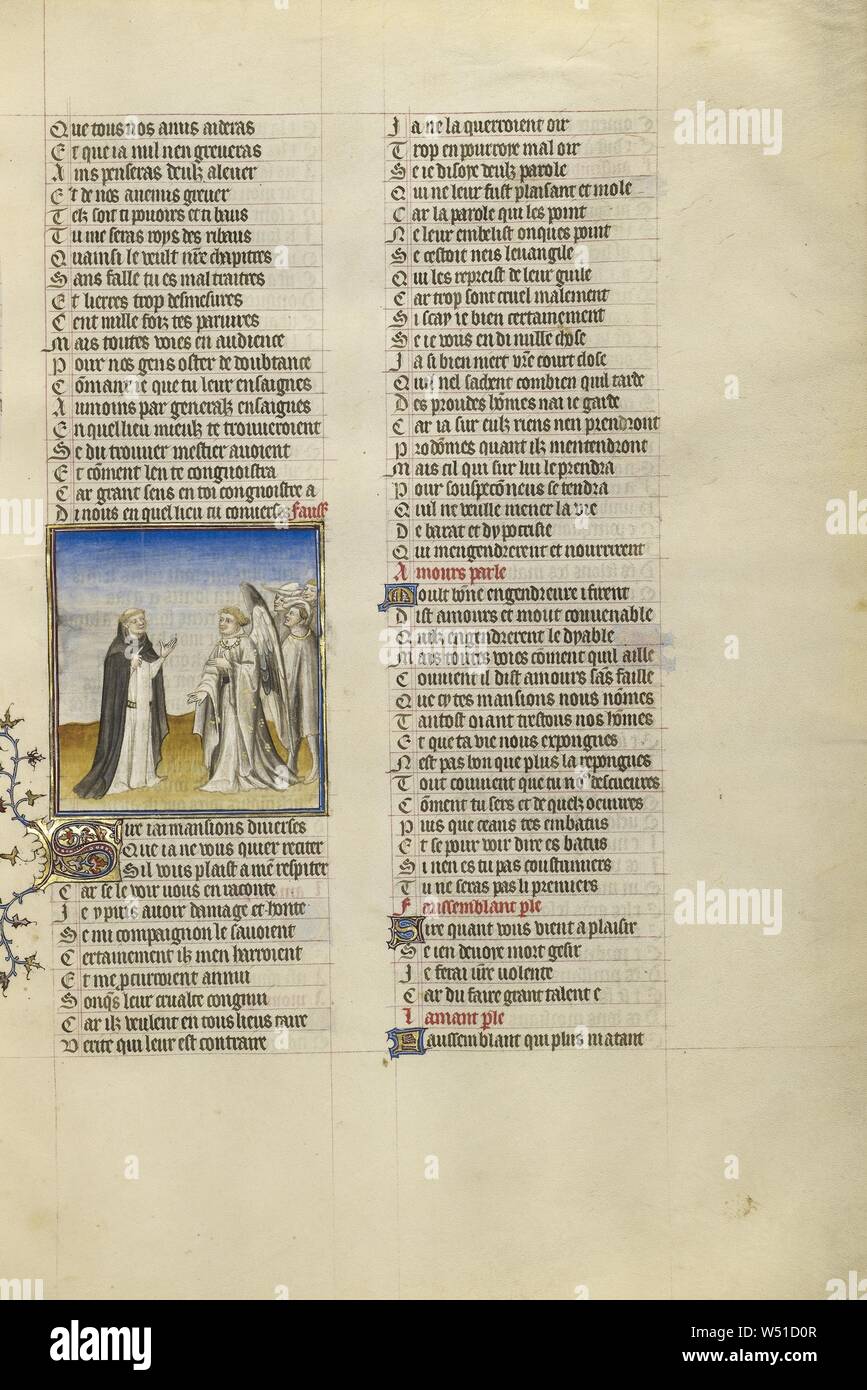 Que tous nos amis aideras
Et que ia nul nen greueras
Ains penseras deulz aleuer
Et de nos anemis greuer
Telz soit ti pouoirs et ti baus
Tu me seras roys des ribaus
Quainsi le veult nr̃e chapitres
Sans faille tu es mal traitres
Et lierres trop desmesures
Cent mille foiz tes pariures
Mais toutes voies en audience
Pour nos gens oster de doubtance
Cõmant ie que tu leur ensaignes
Aumoins par generalz ensaignes
En quel lieu mieulz te trouueroient
Se du trouuer mestier auoient
Et cõment len te congnoistra
Car grant sens en toi congnoistre a
Di nous en quel lieu tu conuerses fauss
Sire iai mansions diuerses
Que ia ne vous quier reciter
Sil vous plaist a mẽ respiter
Car se le voir vous en raconte
Ie y puis auoir damage et honte
Se mi compaignon le sauoient
Certainement ilz men harroient
Et me pcurroient annui
Sonq̃s leur crualte congnui
Car ilz veulent en tous lieus taire
Verite qui leur est contraire
Ia ne la querroient oir
Trop en pourroye mal oir
Se ie disoye deulz parole
Qui ne leur fust plaisant et mole
Car la parole qui les point
Ne leur embelist onques point
Se cestoit neis leuangile
Qui les repreist de leur guile
Car trop sont cruel malement
Si scay ie bien certainement
Se ie vous en di nulle chose
Ia si bien niert vr̃e court close
Quil nel sachent combien quil tarde
Des proudes hõmes nai ie garde
Car ia sur eulz riens nen prendront
Prodõmes quant ilz mentendront
Mais cil qui sur lui le prendra
Pour souspecõneus se tendra
Quil ne veulle mener la vie
De barat et dypocrisie
Qui mengendrerent et nourrirent
Amours parle
Moult bõne engendreure i firent
Dist amours et mout conuenable
Quilz engendrerent le dyable
Mais toutes voies cõment quil aille
Conuient il dist amours sãs faille
Que cy tes mansions nous nõmes
Tantost oiant trestous nos hõmes
Et que ta vie nous expongnes
Nest pas bon que plus la repongnes
Tout conuient que tu nõ descueures
Cõment tu sers et de quelz oeuures
Puis que ceans tes embatus
Et se pour voir dire es batus
Si nen es tu pas coustumiers
Tu ne seras pas li premiers
Faussemblant ple
Sire quant vous vient a plaisir
Se ien deuoye mort gesir
Ie ferai vr̃e volente
Car du faire grant talent e
Lamant ple
Faussemblant qui plus natant
alamy
alamy
Image ID: W51D0R
www.alamy.com